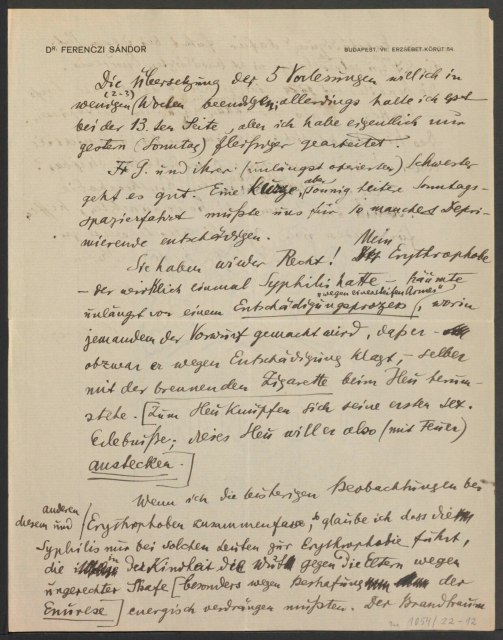 Dr. FERENCZI SÁNDOR
BUDAPEST, VII. ERZSÉBET-KÖRUT 54.
Die Übersetzung der 5 Vorlesungen will ich in
(2-3)
wenigen Wochen beendigen; allerdings halte ich erst
bei der 13. ten Seite, aber ich habe eigentlich nur
gestern (Sonntag) fleißiger gearbeitet.
Fr G. und ihrer (unlängst operierten) Schwester
aber
geht es gut. Eine kurze, sonnig heitere Sonntags-
spazierfahrt mußte uns für so manches Depri-
mierende entschädigen.
Mein
Sie haben wieder Recht! Der Erythrophobe
– der wirklich einmal Syphilis hatte – träumte
"wegen eines steifen Armes"
unlängst von einem Entschädigungsprozess, worin
jemandem der Vorwurf gemacht wird, daß er –
obzwar er wegen Entschädigung klagt, – selber
mit der brennenden Zigarette beim Heu herum-
stehe. [Zum Heu knüpfen sich seine ersten sex.
Erlebniße; dieses Heu will er also (mit Feuer)
anstecken.]
Wenn ich die bisherigen Beobachtungen bei
anderen
diesem und Erythrophoben zusammenfasse, so glaube ich dass die
Syphilis nur bei solchen Leuten zur Erythrophobie führt,
die in der Kindheit die Wut gegen die Eltern wegen
ungerechter Strafe [besonders wegen Bestrafung der
Enurese] energisch verdrängen mußten. Der Brandtraum
1054/22-12